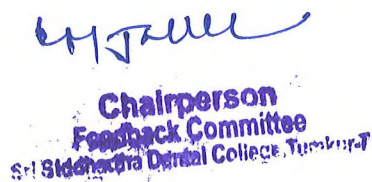 Chairperson
Feedback Committee
Sri Siddhartha Dental College, Tumkur-T